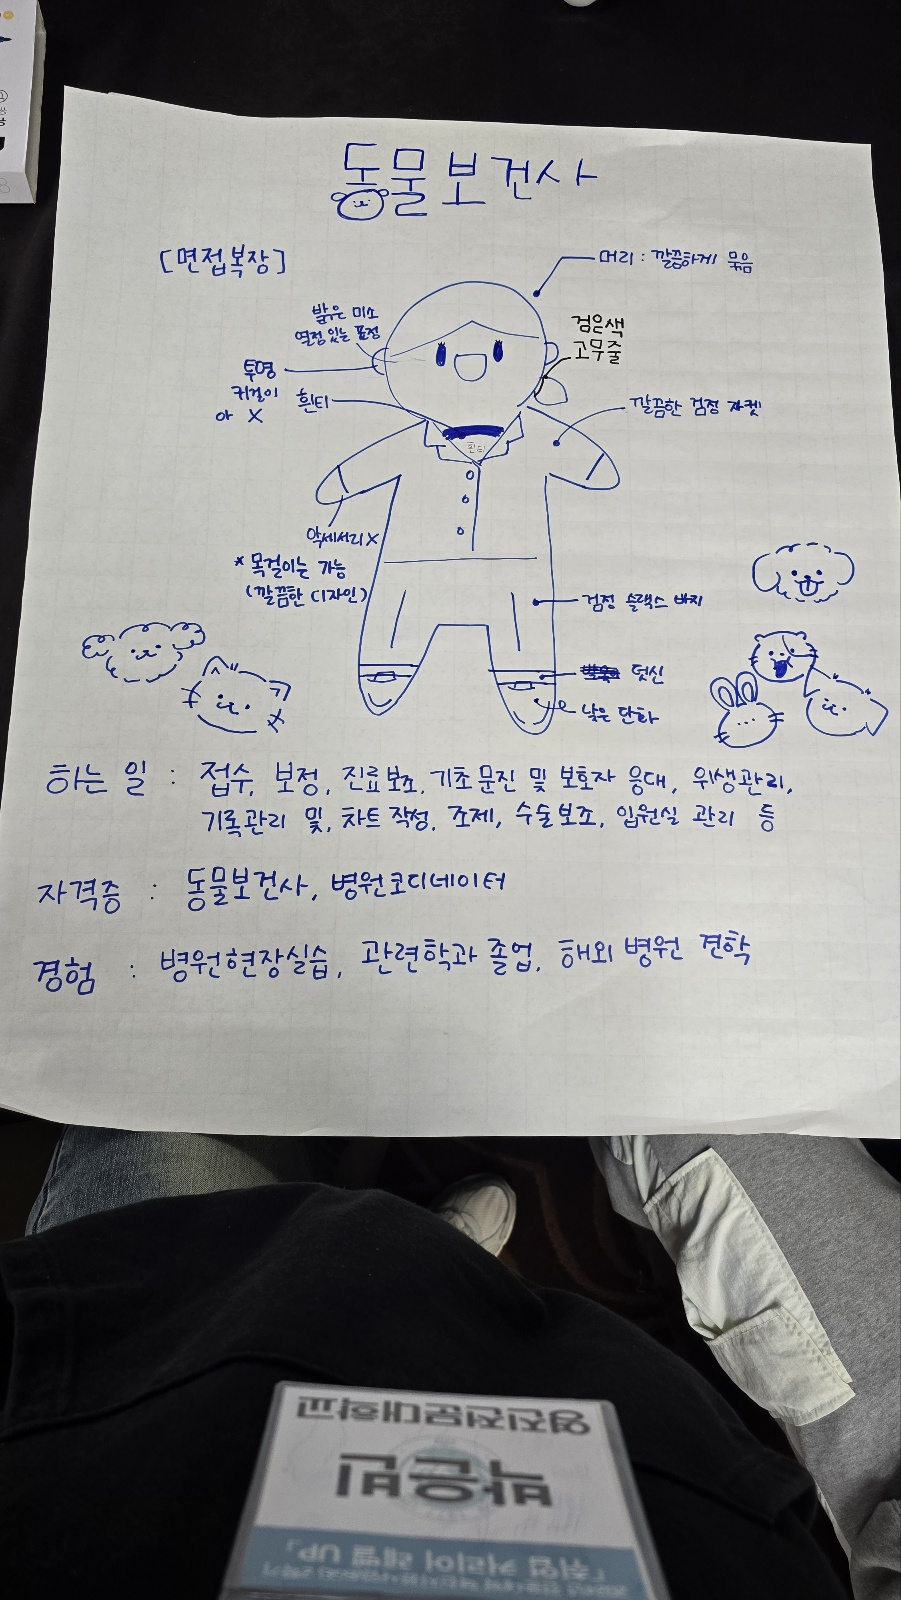 동물보건사
[면접복장]
머리 : 깔끔하게 묶음
밝은 미소
열정 있는 표정
검은색
고무줄
투명
귀걸이
아 X
흰티
깔끔한 검정 자켓
흰티
악세서리 X
* 목걸이는 가능
(깔끔한 디자인)
검정 슬랙스 바지
덧신
낮은 단화
하는 일 : 접수, 보정, 진료보조, 기초문진 및 보호자 응대, 위생관리,
기록관리 및, 차트 작성, 조제, 수술보조, 입원실 관리 등
자격증 : 동물보건사, 병원코디네이터
경험 : 병원현장실습, 관련학과 졸업, 해외 병원 견학
영진전문대학교
박은빈
「취업 커리어 레벨 UP」